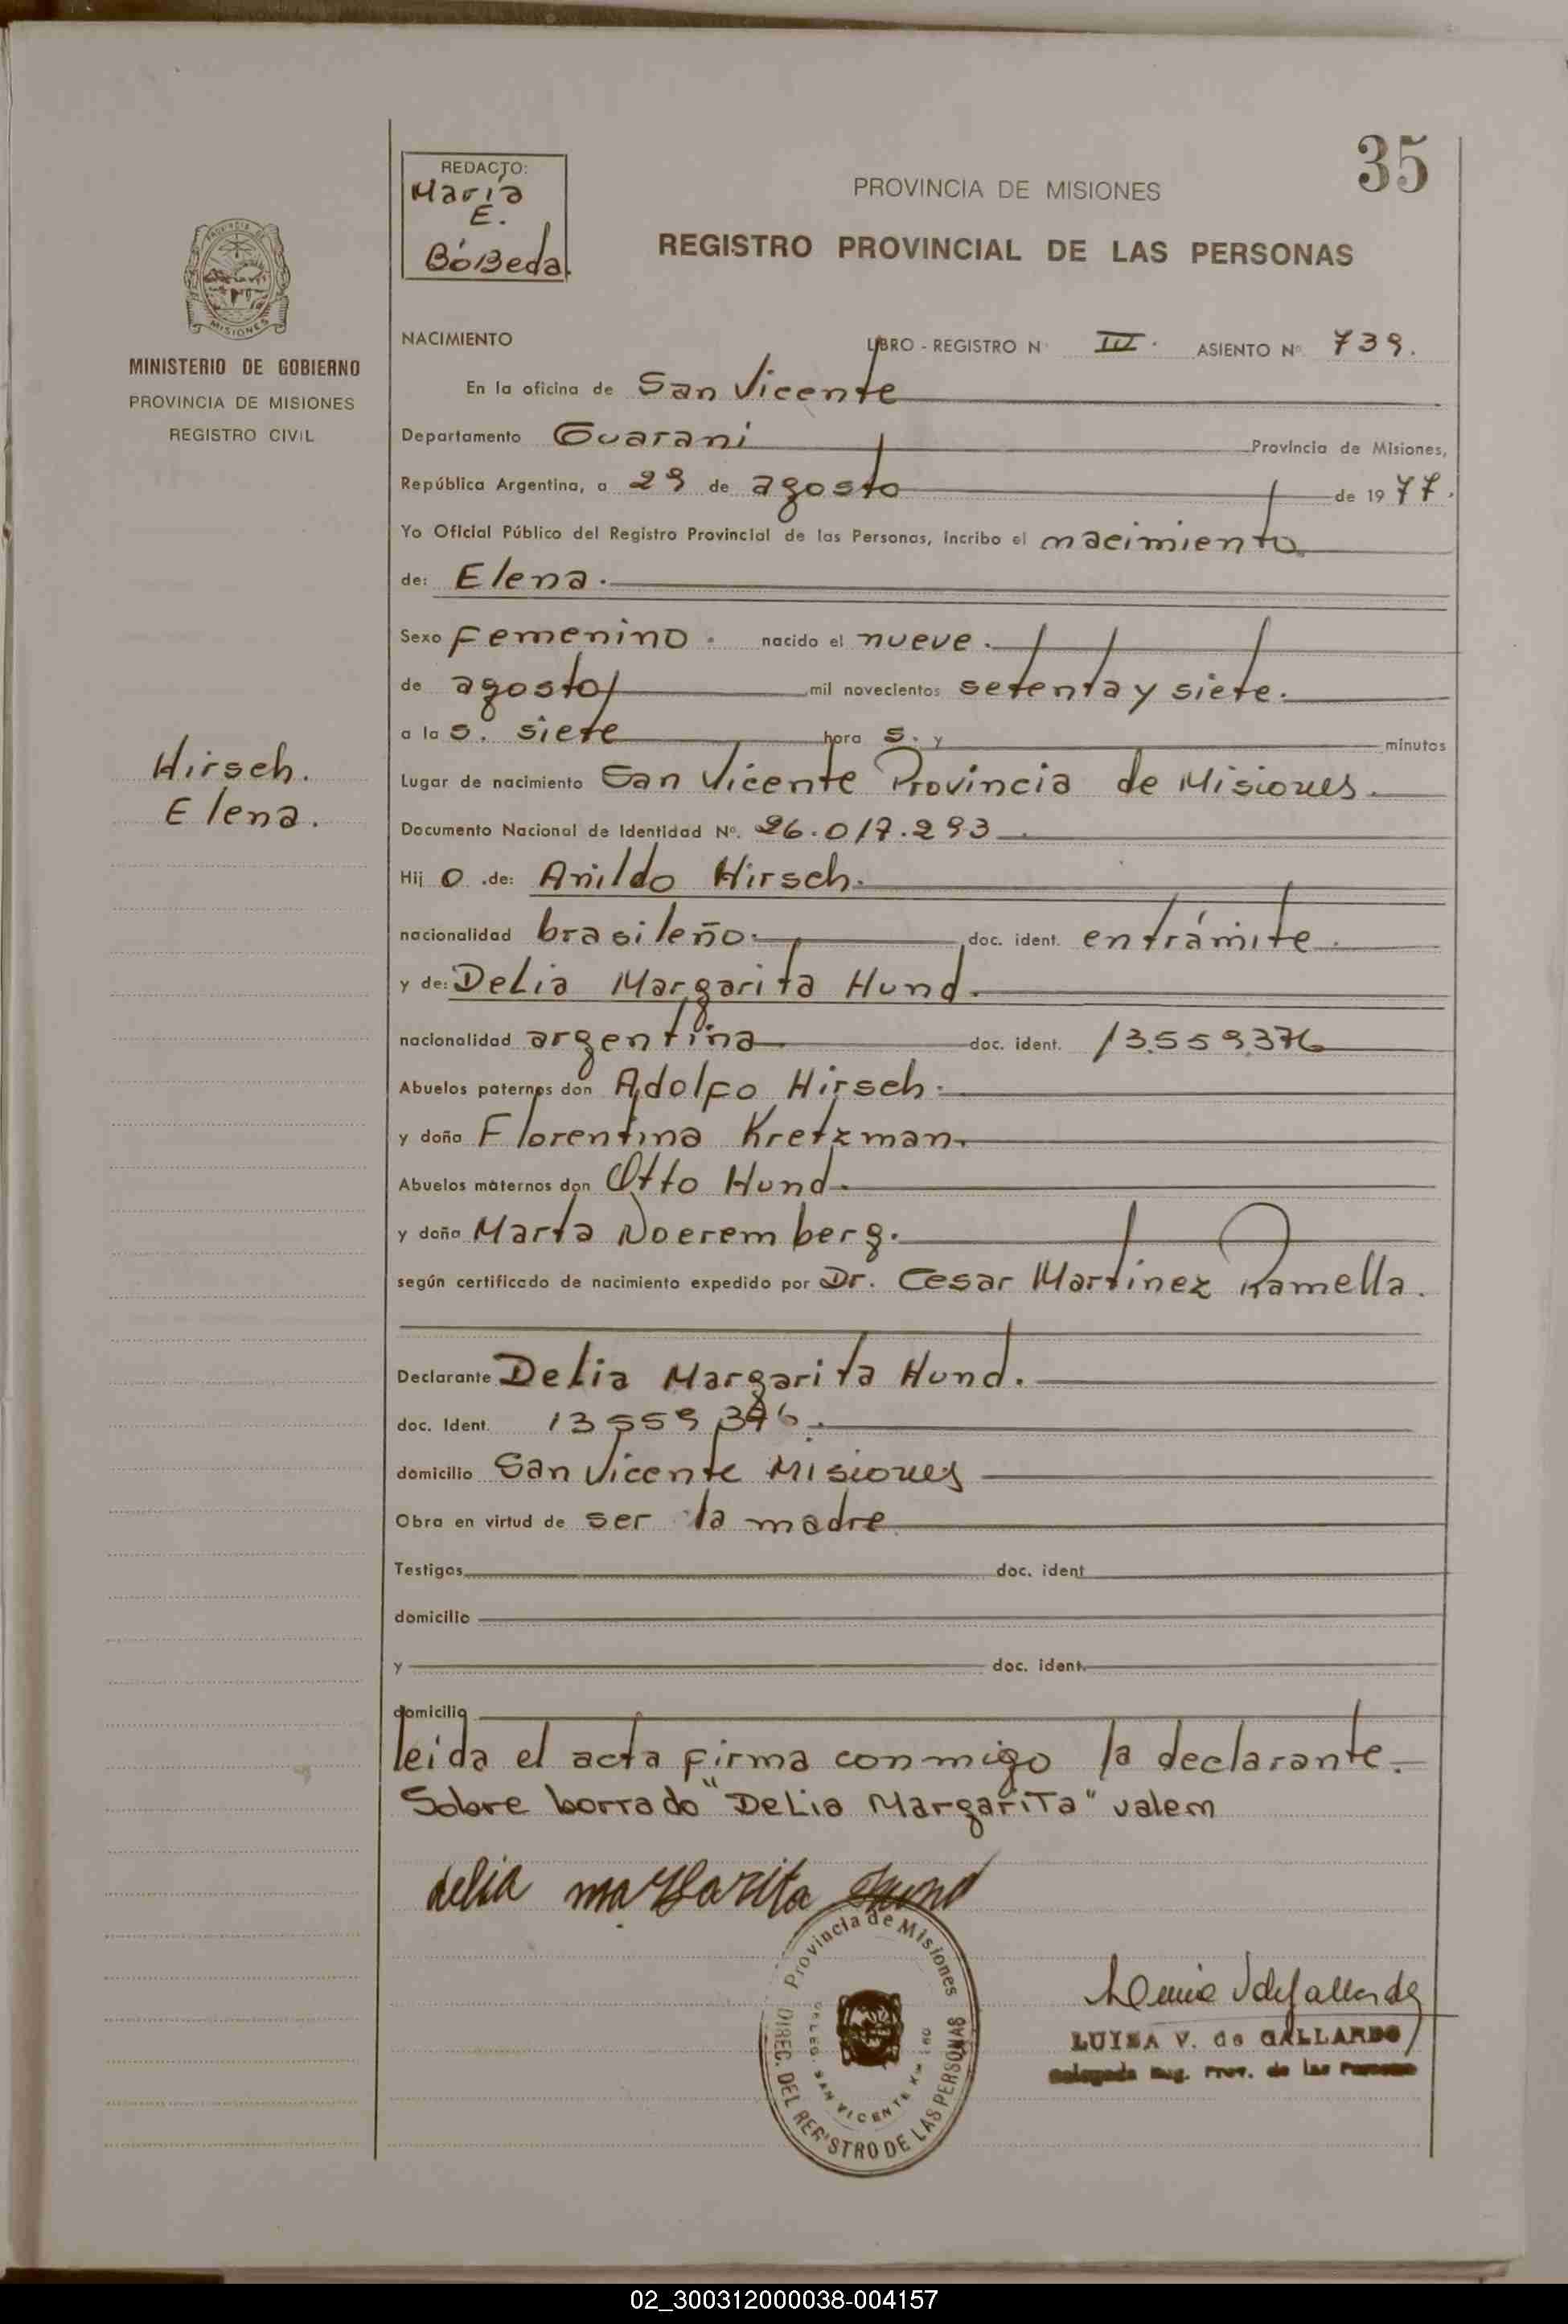 35
REDACTO:
María
E.
BóBeda.
PROVINCIA DE MISIONES
REGISTRO PROVINCIAL DE LAS PERSONAS
MISIONES
MINISTERIO DE GOBIERNO
PROVINCIA DE MISIONES
REGISTRO CIVIL
NACIMIENTO LIBRO - REGISTRO N° III. ASIENTO N° 739.
En la oficina de San Vicente
Departamento Guaraní Provincia de Misiones,
República Argentina, a 29 de agosto de 1977.
Yo Oficial Público del Registro Provincial de las Personas, incribo el nacimiento
de: Elena.
Sexo Femenino. nacido el nueve.
de agosto mil novecientos setenta y siete.
a la s. siete hora s. y minutos
Hirsch.
Elena.
Lugar de nacimiento San Vicente Provincia de Misiones.
Documento Nacional de Identidad N°. 26.017.293
Hij o .de: Anildo Hirsch.
nacionalidad brasileño. doc. ident. entrámite.
y de: Delia Margarita Hund.
nacionalidad argentina doc. ident. 13.559.376
Abuelos paternos don Adolfo Hirsch.
y doña Florentina Kretzman.
Abuelos maternos don Otto Hund.
y doña Marta Noeremberg.
según certificado de nacimiento expedido por Dr. Cesar Martinez Ramella.
Declarante Delia Margarita Hund.
doc. Ident. 13559376.
domicilio San Vicente Misiones
Obra en virtud de ser la madre
Testigos doc. ident
domicilio
y doc. ident.
domicilio
leida el acta firma conmigo la declarante.
Sobre borrado "DeLia MargariTa" valem
delia margarita Hund
Provincia de Misiones
DELEG. SAN VICENTE KM 180
DIREC. DEL REGISTRO DE LAS PERSONAS
LUISA V. de GALLARDO
Delegada Reg. Prov. de las Personas
02_300312000038-004157